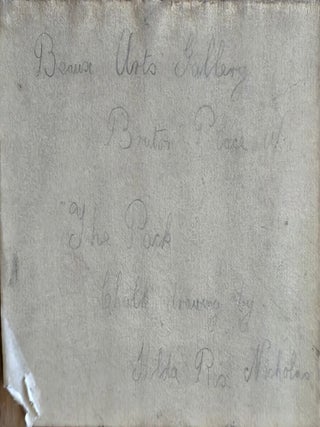 Beaux Arts Gallery
Bruton Place W.
"The Pack
Chalk drawing by
Hilda Rix Nicholas